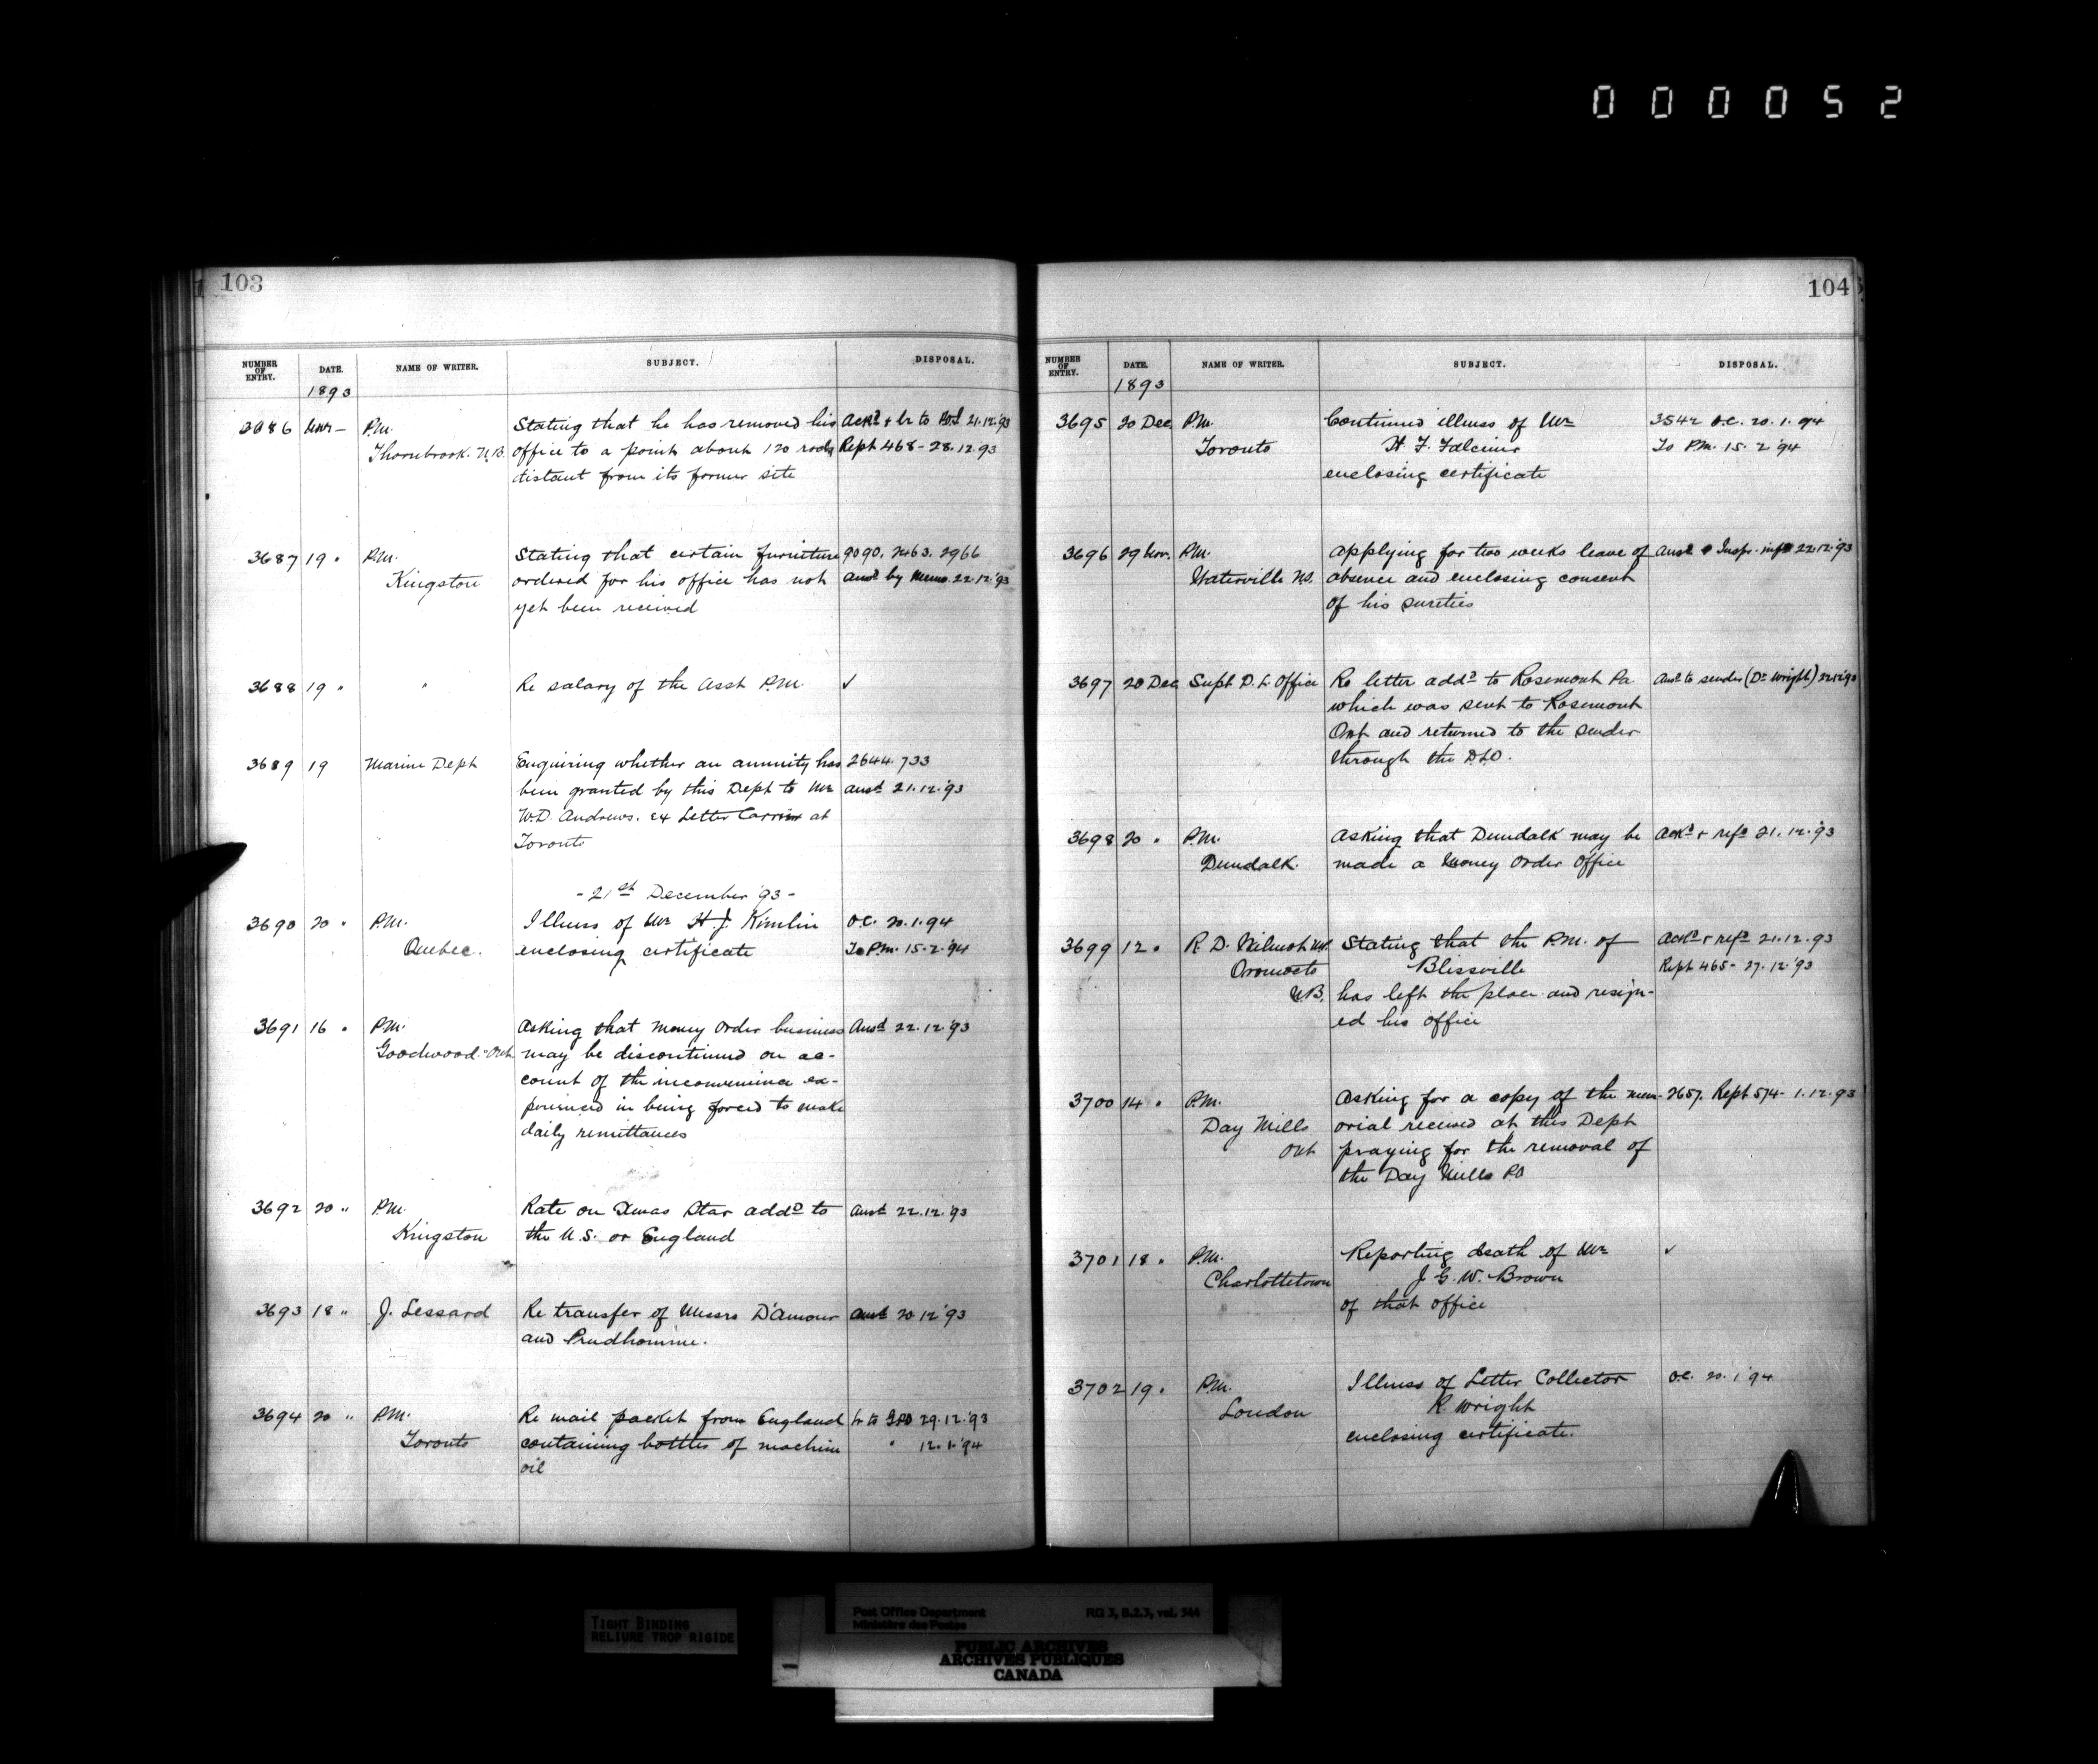 0 0 0 0 5 2
103
NUMBER OF ENTRY. DATE. NAME OF WRITER. SUBJECT. DISPOSAL.
1893
3686 P.M. Stating that he has removed his Ackd & lr to 21.12.'93
Thornbrook. N.B. office to a point about 120 rods Rept 468 - 28.12.93
distant from its former site
3687 19 " P.M. Stating that certain furniture 9090. 2463. 2966
Kingston ordered for his office has not Ansd by Memo. 22.12.'93
yet been received
3688 19 " " Re salary of the Asst P.M. ✓
3689 19 Marine Dept Enquiring whether an annuity has 2644. 733
been granted by this Dept to Mr Ansd 21.12.'93
W.D. Andrews. ex Letter Carrier at
Toronto
- 21st December '93 -
3690 20 " P.M. Illness of Mr H.J. Kimlin O.C. 20.1.94
Quebec. enclosing certificate To P.M. 15.2.'94
3691 16 " P.M. Asking that Money Order business Ansd 22.12.'93
Goodwood. Ont. may be discontinued on ac-
count of the inconvenience ex-
perienced in being forced to make
daily remittances
3692 20 " P.M. Rate on Xmas Star addd to Ansd 22.12.'93
Kingston the U.S. or England
3693 18 " J. Lessard Re transfer of Messrs D'Amour Ansd 20.12.'93
and Prudhomme.
3694 20 " P.M. Re mail packet from England lr to GPO 29.12.'93
Toronto containing bottles of machine " 12.1.'94
oil
104
NUMBER OF ENTRY. DATE. NAME OF WRITER. SUBJECT. DISPOSAL.
1893
3695 20 Dec P.M. Continued illness of Mr 3542 O.C. 20.1.94
Toronto H. F. Falconer To P.M. 15.2.'94
enclosing certificate
3696 29 Nov. P.M. Applying for two weeks leave of Ansd & Inspr. infd 22.12.'93
Waterville N.S. absence and enclosing consent
of his sureties
3697 20 Dec Supt D. L. Office Re letter addd to Rosemont Pa. Ansd to sender (Dr Wright) 22.12.'93
which was sent to Rosemont
Ont and returned to the sender
through the D.L.O.
3698 20 " P.M. Asking that Dundalk may be Ackd & refd 21.12.'93
Dundalk. made a Money Order Office
3699 12 " R. D. Wilmot M.P. Stating that the P.M. of Ackd & refd 21.12.93
Oromocto Blissville Rept 465 - 27.12.'93
N.B. has left the place and resign-
ed his office
3700 14 " P.M. Asking for a copy of the mem- 2657. Rept 574 - 1.12.93
Day Mills orial received at this Dept
Ont praying for the removal of
the Day Mills P.O
3701 18 " P.M. Reporting death of Mr ✓
Charlottetown J. G. W. Brown
of that office
3702 19 " P.M. Illness of Letter Collector O.C. 20.1.'94
London R. Wright
enclosing certificate.
TIGHT BINDING
RELIURE TROP RIGIDE
Post Office Department RG 3, B.2.3, vol. 544
Ministère des Postes
PUBLIC ARCHIVES
ARCHIVES PUBLIQUES
CANADA